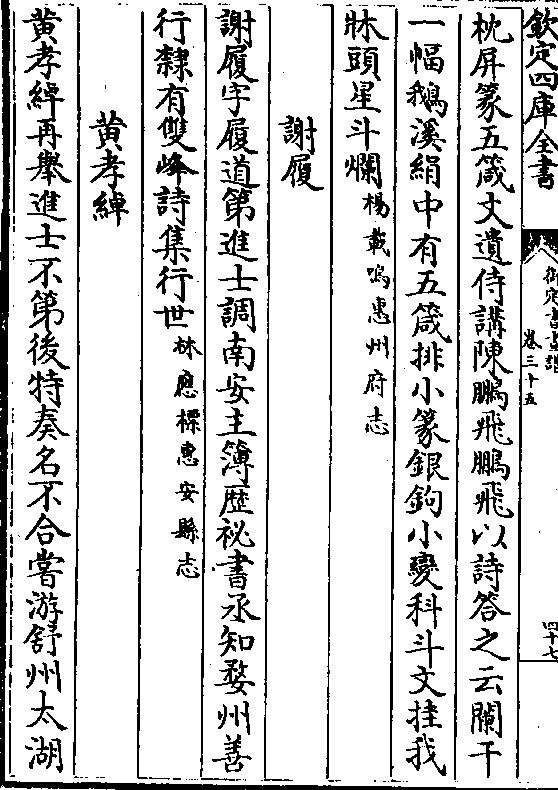 欽定四庫全書
御定書畫譜
卷三十五
四十七
枕屏篆五箴丈遺侍講陳鵬飛鵬飛以詩答之云闌干
一幅鵝溪絹中有五箴排小篆銀鉤小變科斗文挂我
牀頭星斗爛楊載鳴惠州府志
謝履
謝履字履道第進士調南安主簿歷祕書丞知婺州善
行隸有雙峰詩集行世林應標惠安縣志
黄孝綽
黄孝綽再舉進士不第後特奏名不合嘗游舒州太湖